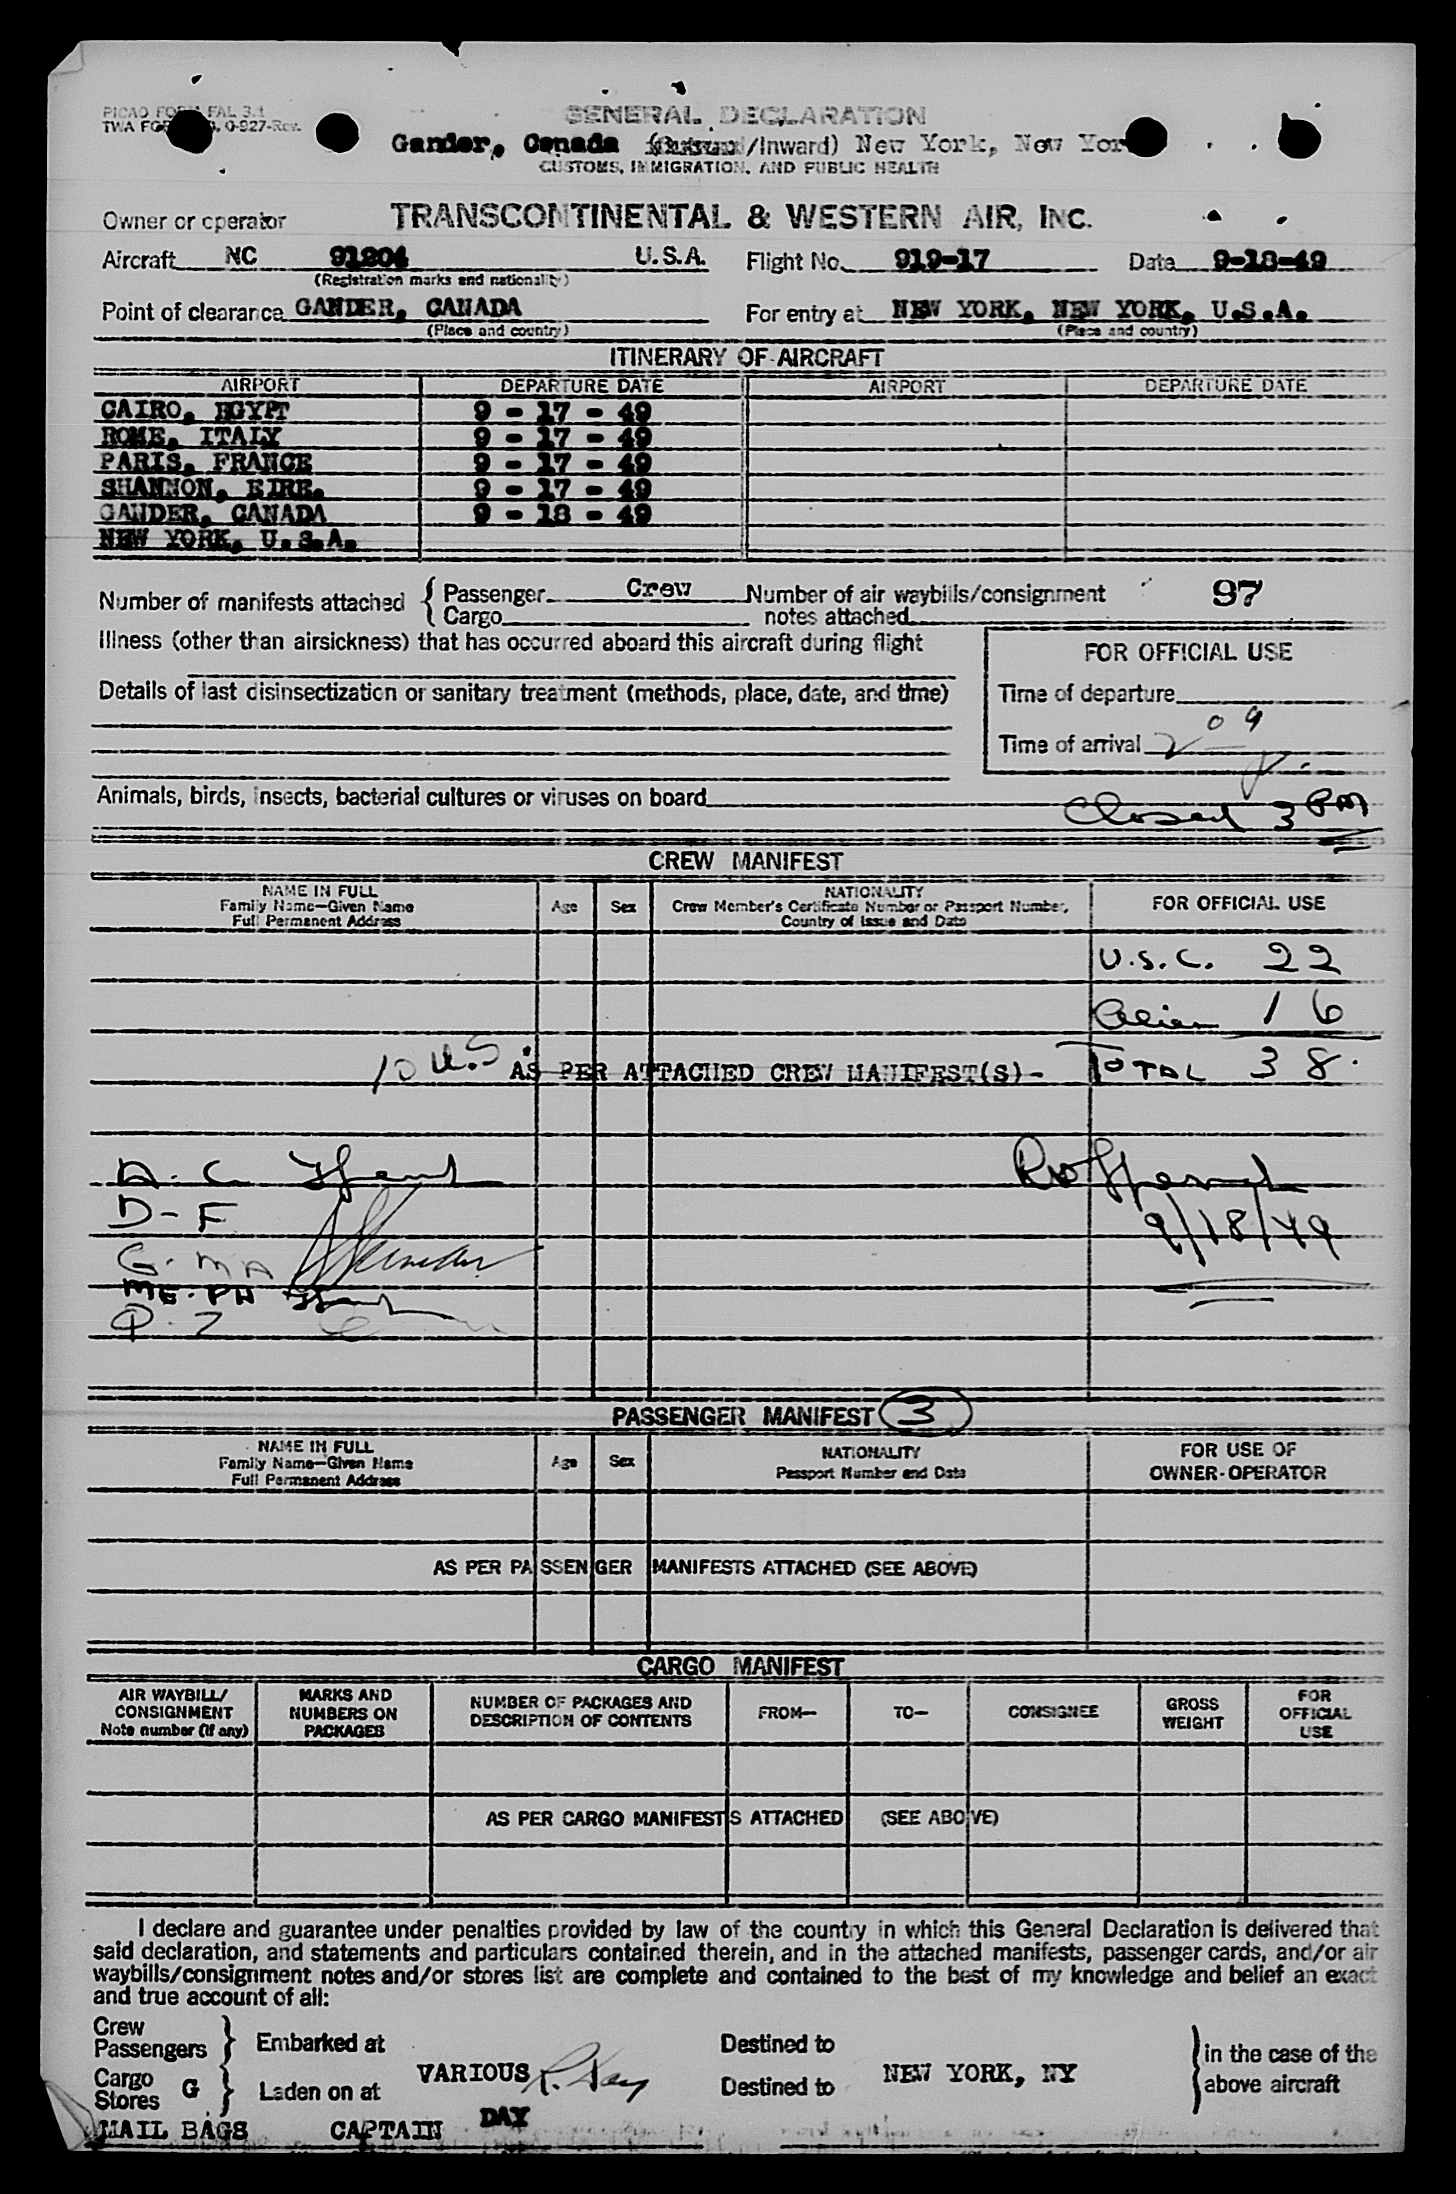 PICAO FORM FAL 3.1
TWA FORM NO. O-927-Rev.
GENERAL DECLARATION
Gander, Canada (Outward/Inward) New York, New York
CUSTOMS, IMMIGRATION, AND PUBLIC HEALTH
Owner or operator TRANSCONTINENTAL & WESTERN AIR, INC.
Aircraft NC 91204 U.S.A. Flight No. 919-17 Date 9-18-49
(Registration marks and nationality)
Point of clearance GANDER, CANADA For entry at NEW YORK, NEW YORK, U.S.A.
(Place and country) (Place and country)
ITINERARY OF AIRCRAFT
AIRPORT DEPARTURE DATE AIRPORT DEPARTURE DATE
CAIRO, EGYPT 9 - 17 - 49
ROME, ITALY 9 - 17 - 49
PARIS, FRANCE 9 - 17 - 49
SHANNON, EIRE. 9 - 17 - 49
GANDER, CANADA 9 - 18 - 49
NEW YORK, U.S.A.
Number of manifests attached { Passenger Crew Number of air waybills/consignment 97
Cargo notes attached
Illness (other than airsickness) that has occurred aboard this aircraft during flight
FOR OFFICIAL USE
Details of last disinsectization or sanitary treatment (methods, place, date, and time)
Time of departure
Time of arrival 2 09 P.
Animals, birds, insects, bacterial cultures or viruses on board
Closed 3 PM
CREW MANIFEST
NAME IN FULL
Family Name—Given Name
Full Permanent Address
Age Sex
NATIONALITY
Crew Member's Certificate Number or Passport Number,
Country of Issue and Date
FOR OFFICIAL USE
U.S.C. 22
Alien 16
10 U.S. AS PER ATTACHED CREW MANIFEST(S)- TOTAL 38.
A. C
D - F 9/18/49
G. MA
ME. PH
Q. Z
PASSENGER MANIFEST 3
NAME IN FULL
Family Name—Given Name
Full Permanent Address
Age Sex
NATIONALITY
Passport Number and Date
FOR USE OF
OWNER-OPERATOR
AS PER PASSENGER MANIFESTS ATTACHED (SEE ABOVE)
CARGO MANIFEST
AIR WAYBILL/
CONSIGNMENT
Note number (if any)
MARKS AND
NUMBERS ON
PACKAGES
NUMBER OF PACKAGES AND
DESCRIPTION OF CONTENTS
FROM— TO— CONSIGNEE
GROSS
WEIGHT
FOR
OFFICIAL
USE
AS PER CARGO MANIFESTS ATTACHED (SEE ABOVE)
I declare and guarantee under penalties provided by law of the country in which this General Declaration is delivered that
said declaration, and statements and particulars contained therein, and in the attached manifests, passenger cards, and/or air
waybills/consignment notes and/or stores list are complete and contained to the best of my knowledge and belief an exact
and true account of all:
Crew
Passengers } Embarked at Destined to
VARIOUS R. Day NEW YORK, NY } in the case of the
above aircraft
Cargo
Stores G } Laden on at Destined to
MAIL BAGS CAPTAIN DAY